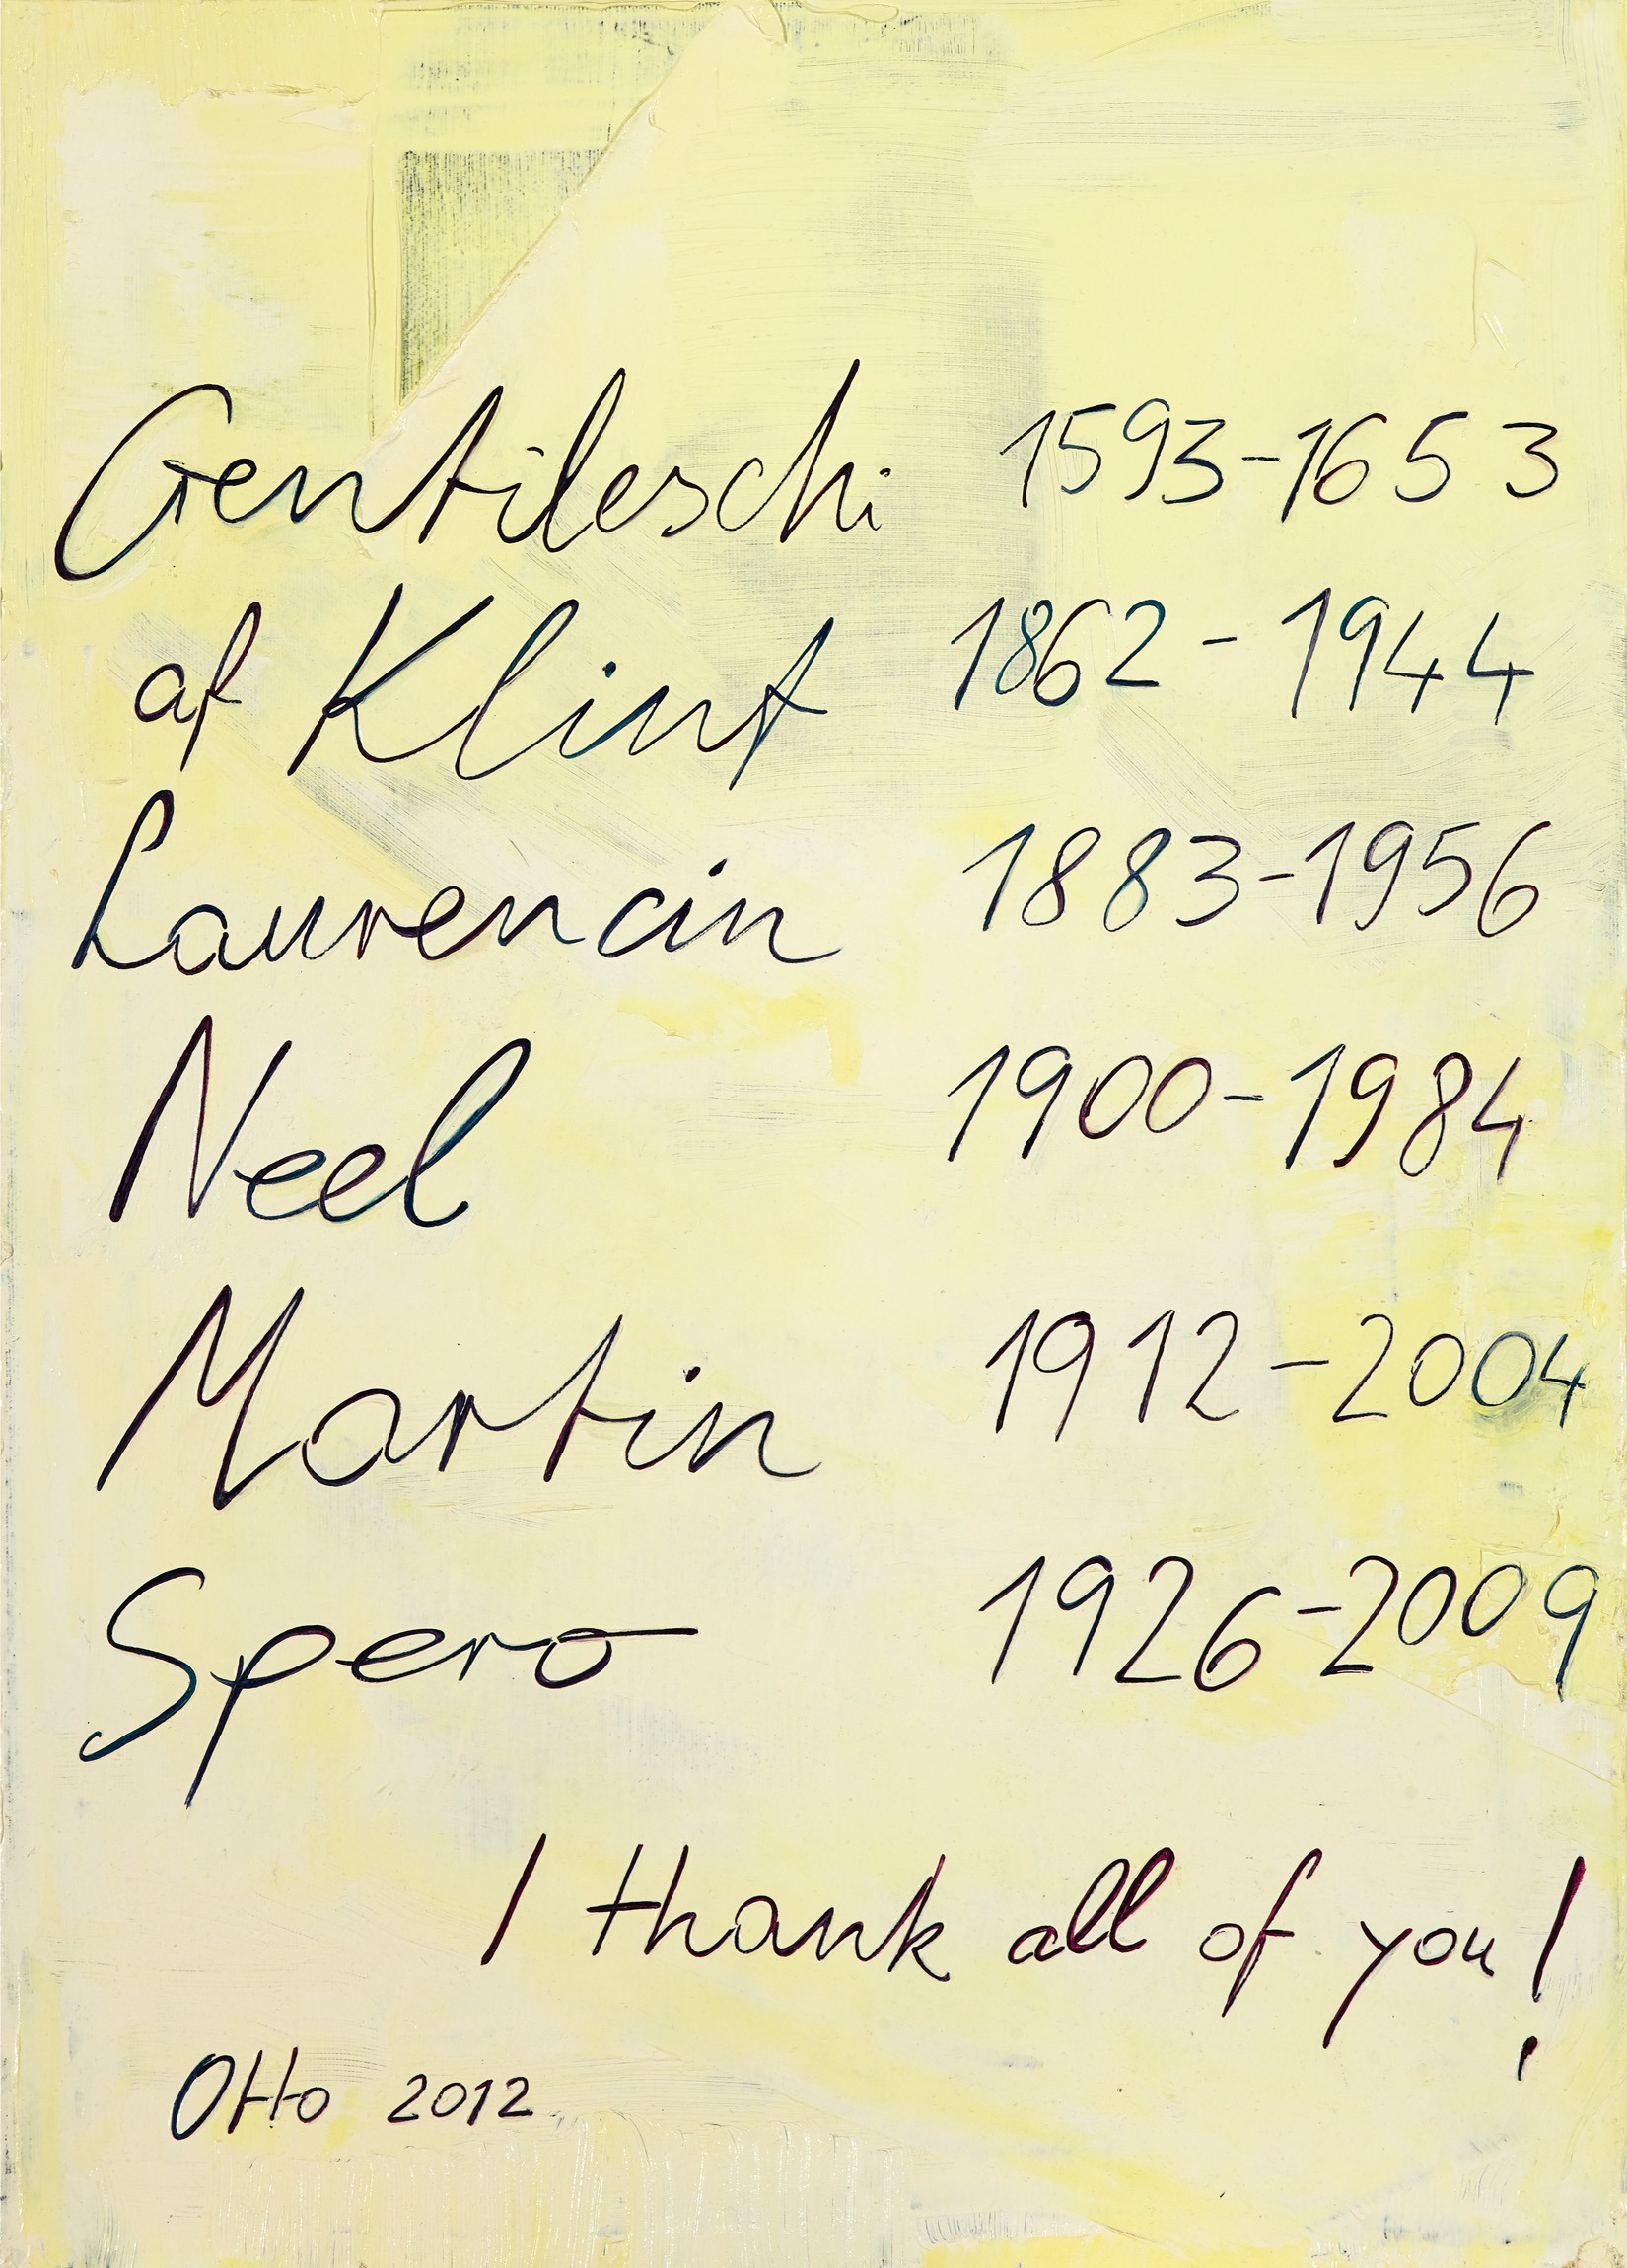 Gentileschi 1593-1653
af Klint 1862 - 1944
Laurencin 1883-1956
Neel 1900-1984
Martin 1912-2004
Spero 1926-2009
I thank all of you!
Otto 2012